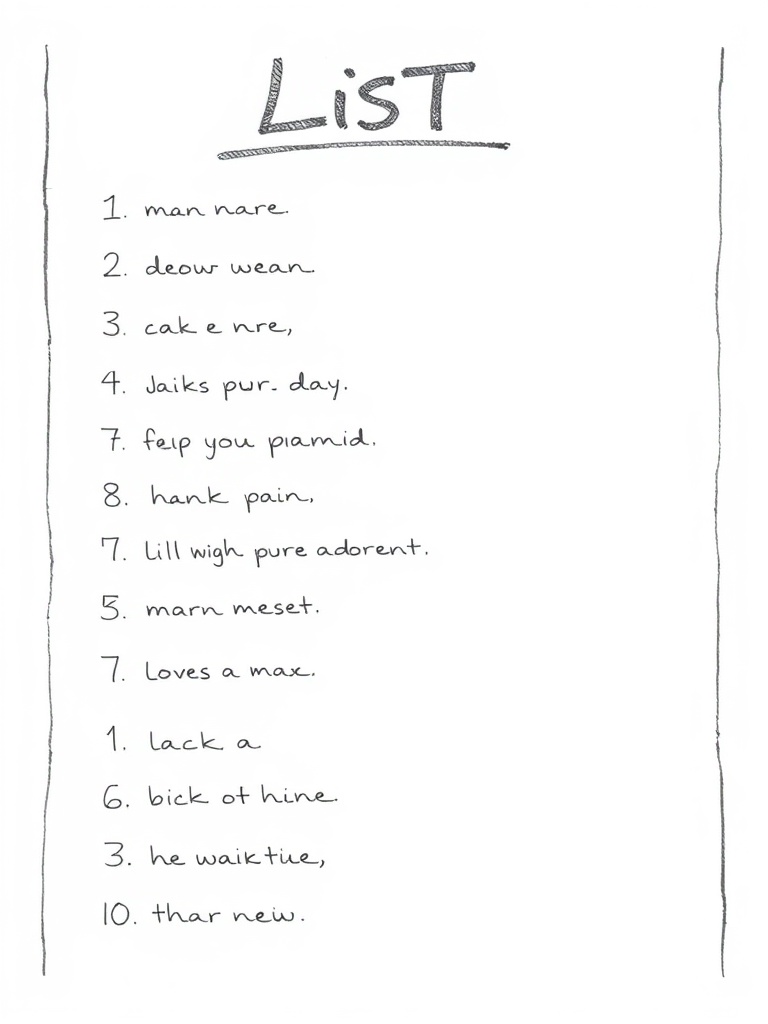 LiST
1. man nare.
2. deow wean.
3. cak e nre,
4. Jaiks pur. day.
7. feıp you pıamid.
8. hank pain,
7. Lill wigh pure adorent.
5. marn meset.
7. Loves a max.
1. lack a
6. bick ot hine.
3. he waik tiıe,
10. thar new.